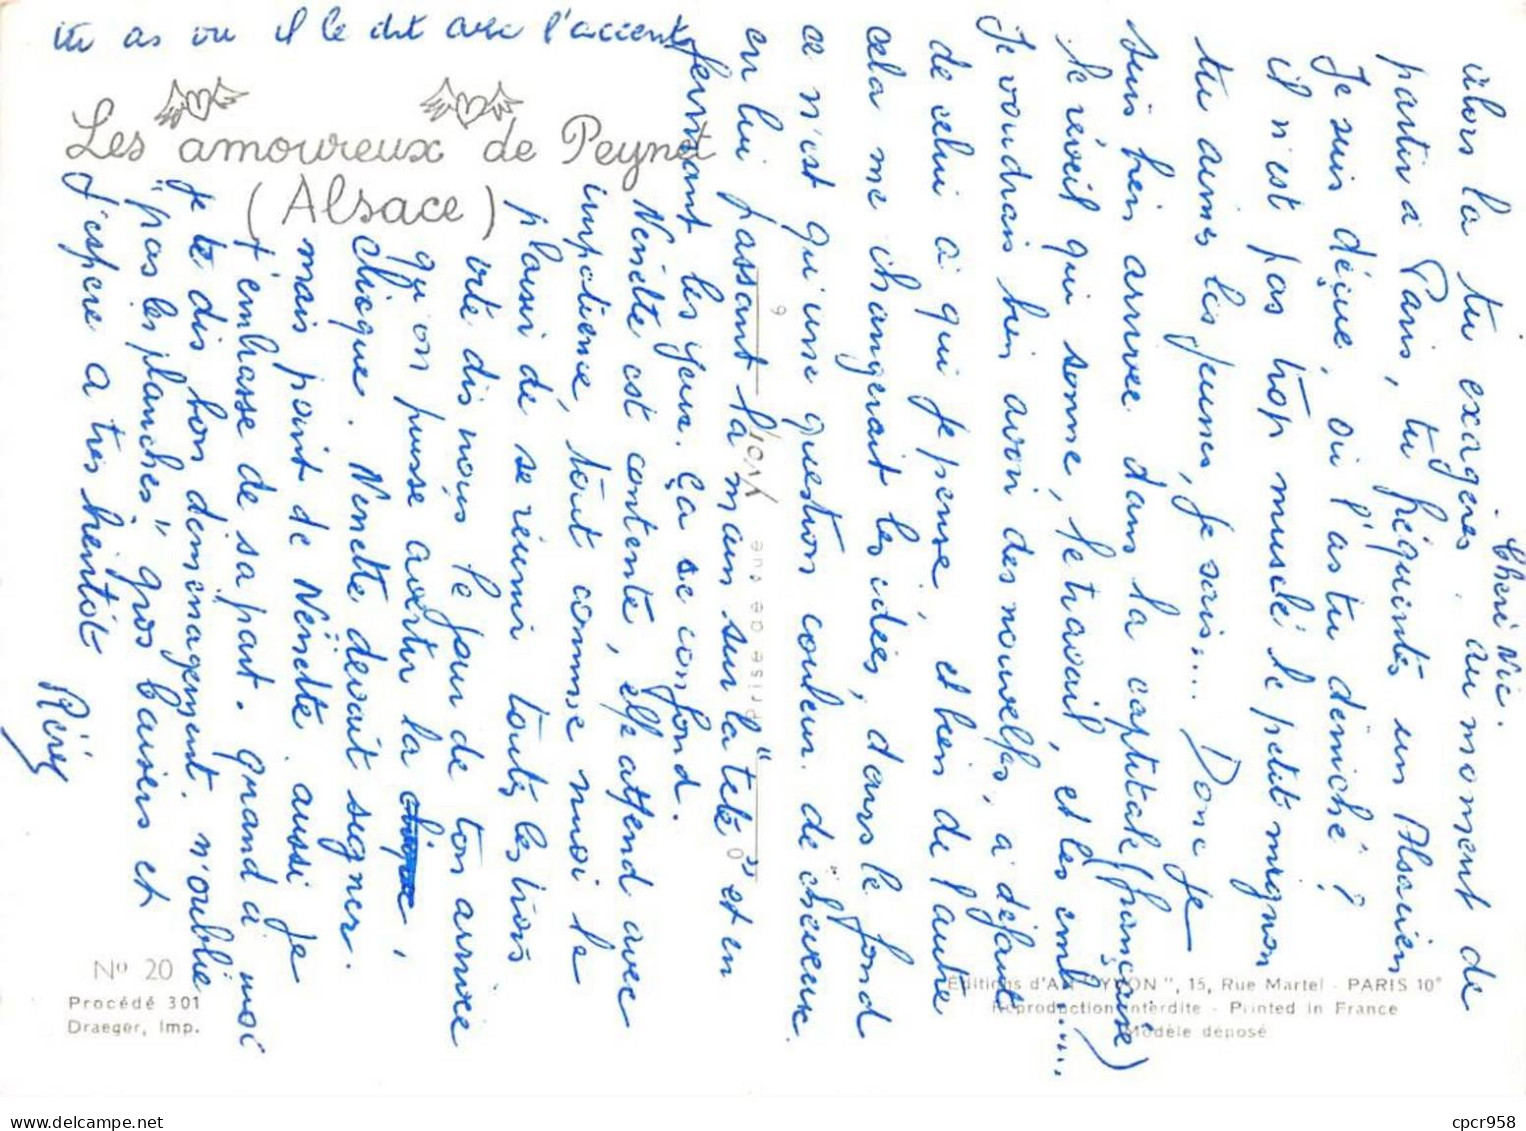 tu as vu il le dit avec l'accent
Les amoureux de Peynet
(Alsace)
Chère Nic.
alors la tu exagères. au moment de
partir à Paris, tu fréquentes un Alsacien
Je suis déçue, où l'as tu déniché ?
il n'est pas trop musclé le petit mignon
tu aimes les jeunes, je sais.... Donc je
suis bien arrivée dans la capitale (française)
le réveil qui sonne, le travail, et les emb......
Je voudrais bien avoir des nouvelles, à défaut
de celui à qui je pense, et bien de l'autre
cela me changerait les idées, dans le fond
ce n'est qu'une question couleur de cheveux.
en lui passant la main sur la "tête" et en
fermant les yeux. Ça se confond.
Nénette est contente, elle attend avec
impatience, tout comme moi le
plaisir de se réunir toutes les trois
vite dis nous le jour de ton arrivée
qu'on puisse avertir la
clicque. Nénette devait signer.
mais point de Nénette aussi je
t'embrasse de sa part. quand à moi
je te dis bon déménagement. n'oublie
"pas les planches" gros baisers et
J'espère à très bientôt
Prise de vue YVON
N° 20
Procédé 301
Draeger, Imp.
Editions d'Art "YVON", 15, Rue Martel - PARIS 10°
Reproduction interdite - Printed in France
Modèle déposé
cpcr958